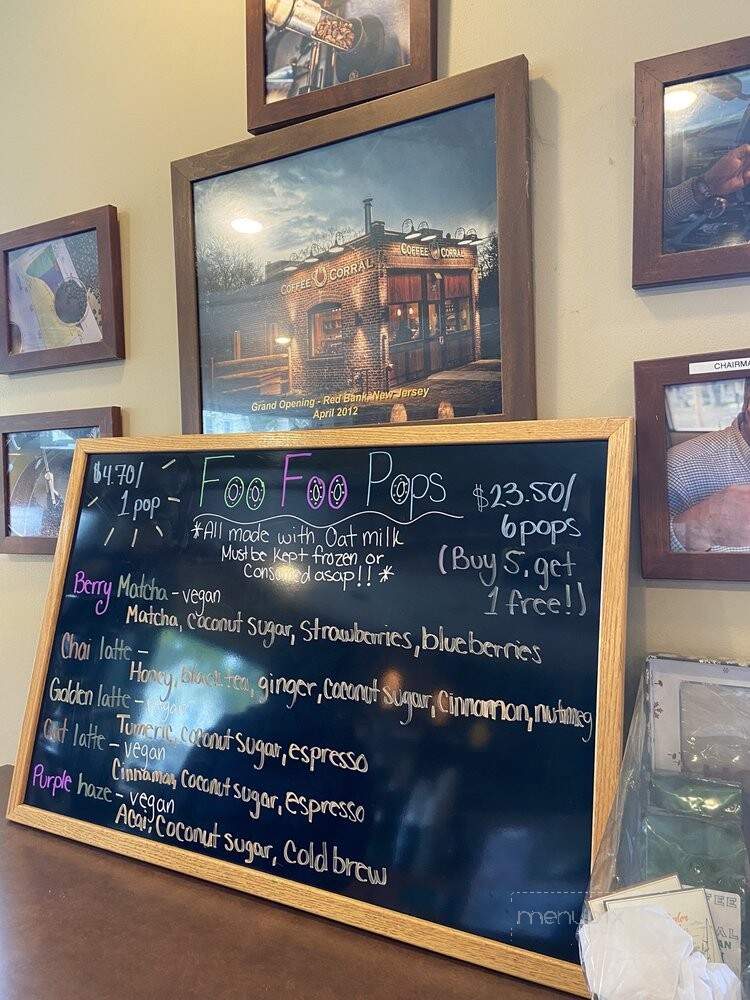 COFFEE CORRAL
COFFEE CORRAL
Grand Opening - Red Bank, New Jersey
April 2012
CHAIRMA
$4.70/
1 pop
Foo Foo Pops
$23.50/
6 pops
(Buy 5, get
1 free!)
*All made with Oat milk
Must be Kept frozen or
Consomed asap!! *
Berry Matcha - vegan
Matcha, coconut sugar, strawberries, blueberries
Chai latte -
Honey, black tea, ginger, coconut sugar, cinnamon, nutmeg
Golden latte - vegan
Tumeric, coconut sugar, espresso
latte - vegan
Cinnamon, coconut sugar, espresso
Purple haze - vegan
Acai, Coconut sugar, Cold brew
menu